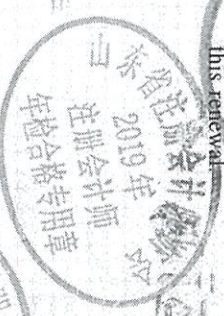 this renewal.
山东省注册会计
2019 年
注册会计师
年检合格专用章